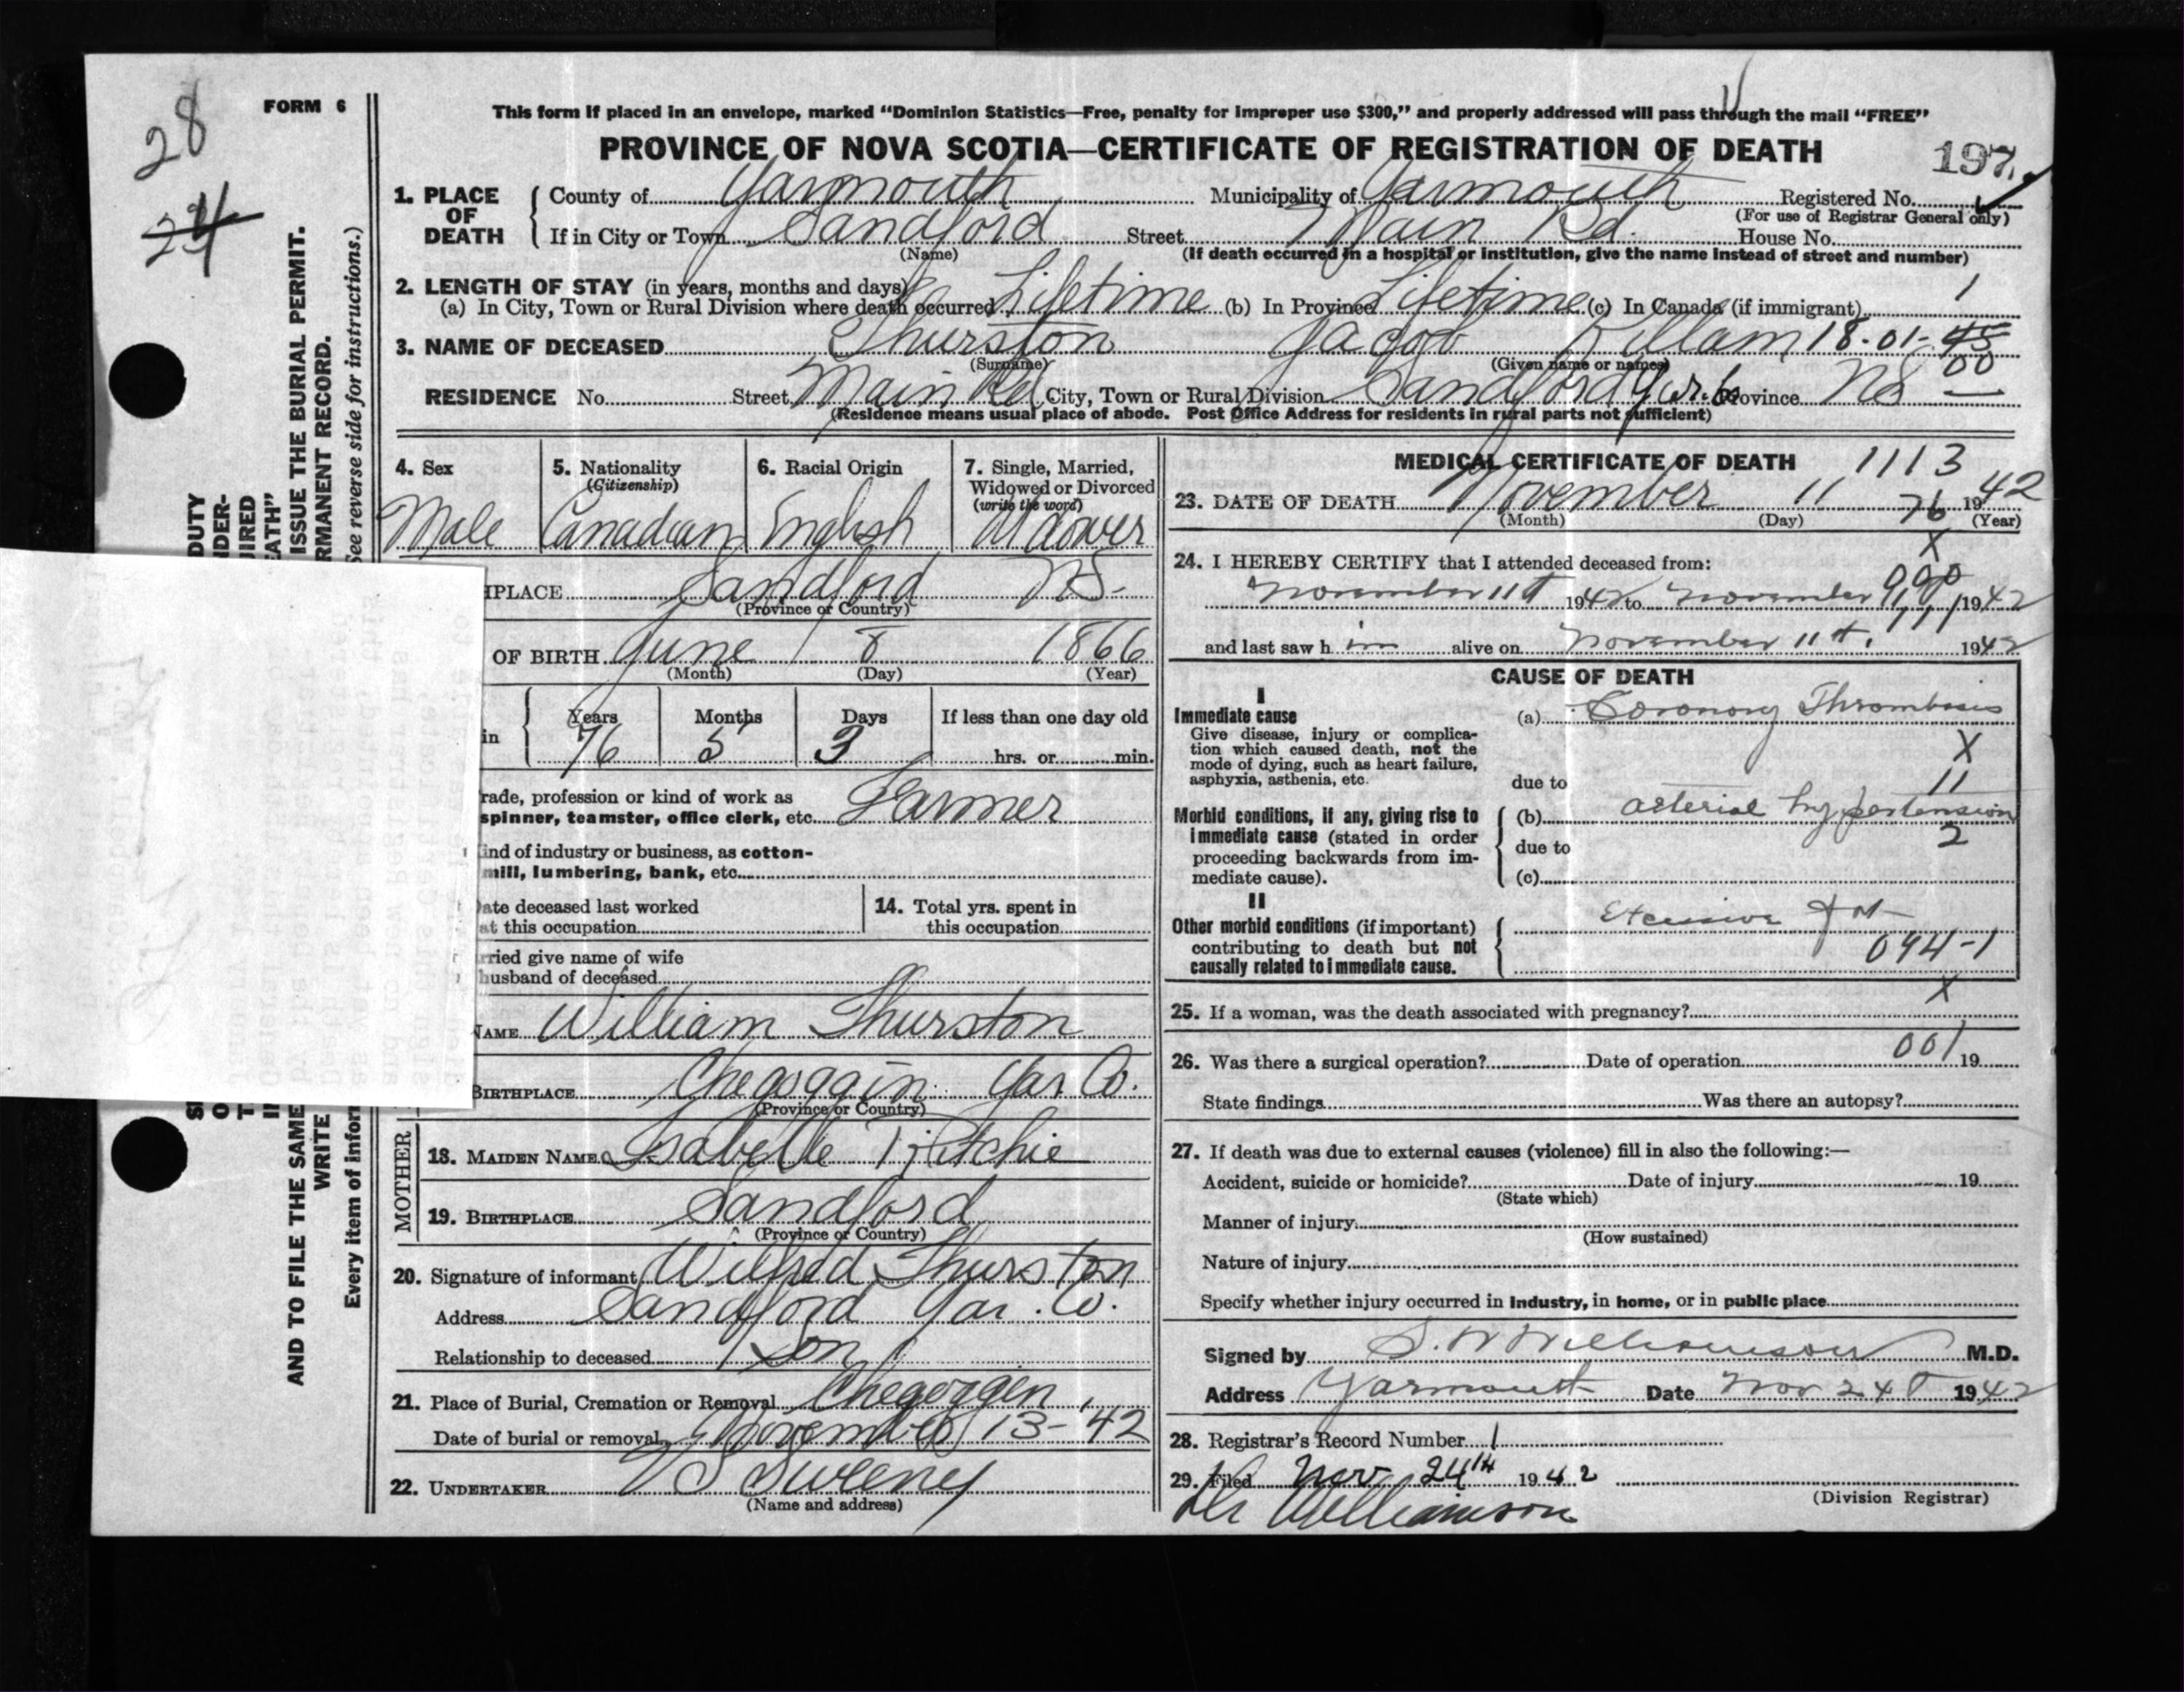 28
24
FORM 6
This form if placed in an envelope, marked “Dominion Statistics—Free, penalty for improper use $300,” and properly addressed will pass through the mail “FREE”
PROVINCE OF NOVA SCOTIA—CERTIFICATE OF REGISTRATION OF DEATH
197
1. PLACE OF DEATH
County of Yarmouth Municipality of Yarmouth Registered No.
(For use of Registrar General only)
If in City or Town Sandford Street Main Rd. House No.
(Name) (If death occurred in a hospital or institution, give the name instead of street and number)
2. LENGTH OF STAY (in years, months and days)
(a) In City, Town or Rural Division where death occurred Lifetime (b) In Province Lifetime (c) In Canada (if immigrant) 1
3. NAME OF DECEASED Thurston Jacob Killam 18-01-45
(Surname) (Given name or names) 00
RESIDENCE No. Street Main Rd City, Town or Rural Division Sandford Yar. Co Province NS
(Residence means usual place of abode. Post Office Address for residents in rural parts not sufficient)
DUTY
NDER-
UIRED
EATH”
ISSUE THE BURIAL PERMIT.
RMANENT RECORD.
See reverse side for instructions.)
AND TO FILE THE SAME
WRITE
Every item of infor
4. Sex
Male
5. Nationality
(Citizenship)
Canadian
6. Racial Origin
English
7. Single, Married,
Widowed or Divorced
(write the word)
Widower
HPLACE Sandford NS.
(Province or Country)
OF BIRTH June 8 1866
(Month) (Day) (Year)
in
Years Months Days If less than one day old
76 5 3 hrs. or min.
rade, profession or kind of work as
spinner, teamster, office clerk, etc. Farmer
ind of industry or business, as cotton-
mill, lumbering, bank, etc.
ate deceased last worked
at this occupation
14. Total yrs. spent in
this occupation
rried give name of wife
husband of deceased
NAME William Thurston
BIRTHPLACE Chegoggin Yar Co.
(Province or Country)
MOTHER
18. MAIDEN NAME Isabelle Ritchie
19. BIRTHPLACE Sandford
(Province or Country)
20. Signature of informant Wilfred Thurston
Address Sandford Yar. Co.
Relationship to deceased Son
21. Place of Burial, Cremation or Removal Chegoggin
Date of burial or removal November 13-'42
22. UNDERTAKER VS Sweeny
(Name and address)
MEDICAL CERTIFICATE OF DEATH 1113
23. DATE OF DEATH November 11 76 1942
(Month) (Day) (Year)
X
24. I HEREBY CERTIFY that I attended deceased from:
November 11th 1942 to November 1942
and last saw him alive on November 11th. 1942
CAUSE OF DEATH
I
Immediate cause
Give disease, injury or complica-
tion which caused death, not the
mode of dying, such as heart failure,
asphyxia, asthenia, etc.
(a) Coronary Thrombosis
X
due to 11
Morbid conditions, if any, giving rise to
immediate cause (stated in order
proceeding backwards from im-
mediate cause).
(b) arterial hypertension
due to 2
(c)
II
Other morbid conditions (if important)
contributing to death but not
causally related to immediate cause.
094-1
X
25. If a woman, was the death associated with pregnancy?
26. Was there a surgical operation? Date of operation 001 19
State findings Was there an autopsy?
27. If death was due to external causes (violence) fill in also the following:—
Accident, suicide or homicide? Date of injury 19
(State which)
Manner of injury
(How sustained)
Nature of injury
Specify whether injury occurred in industry, in home, or in public place
Signed by S. W Williamson M.D.
Address Yarmouth Date Nov 24th 1942
28. Registrar's Record Number 1
29. Filed Nov 24th 1942
(Division Registrar)
Williamson